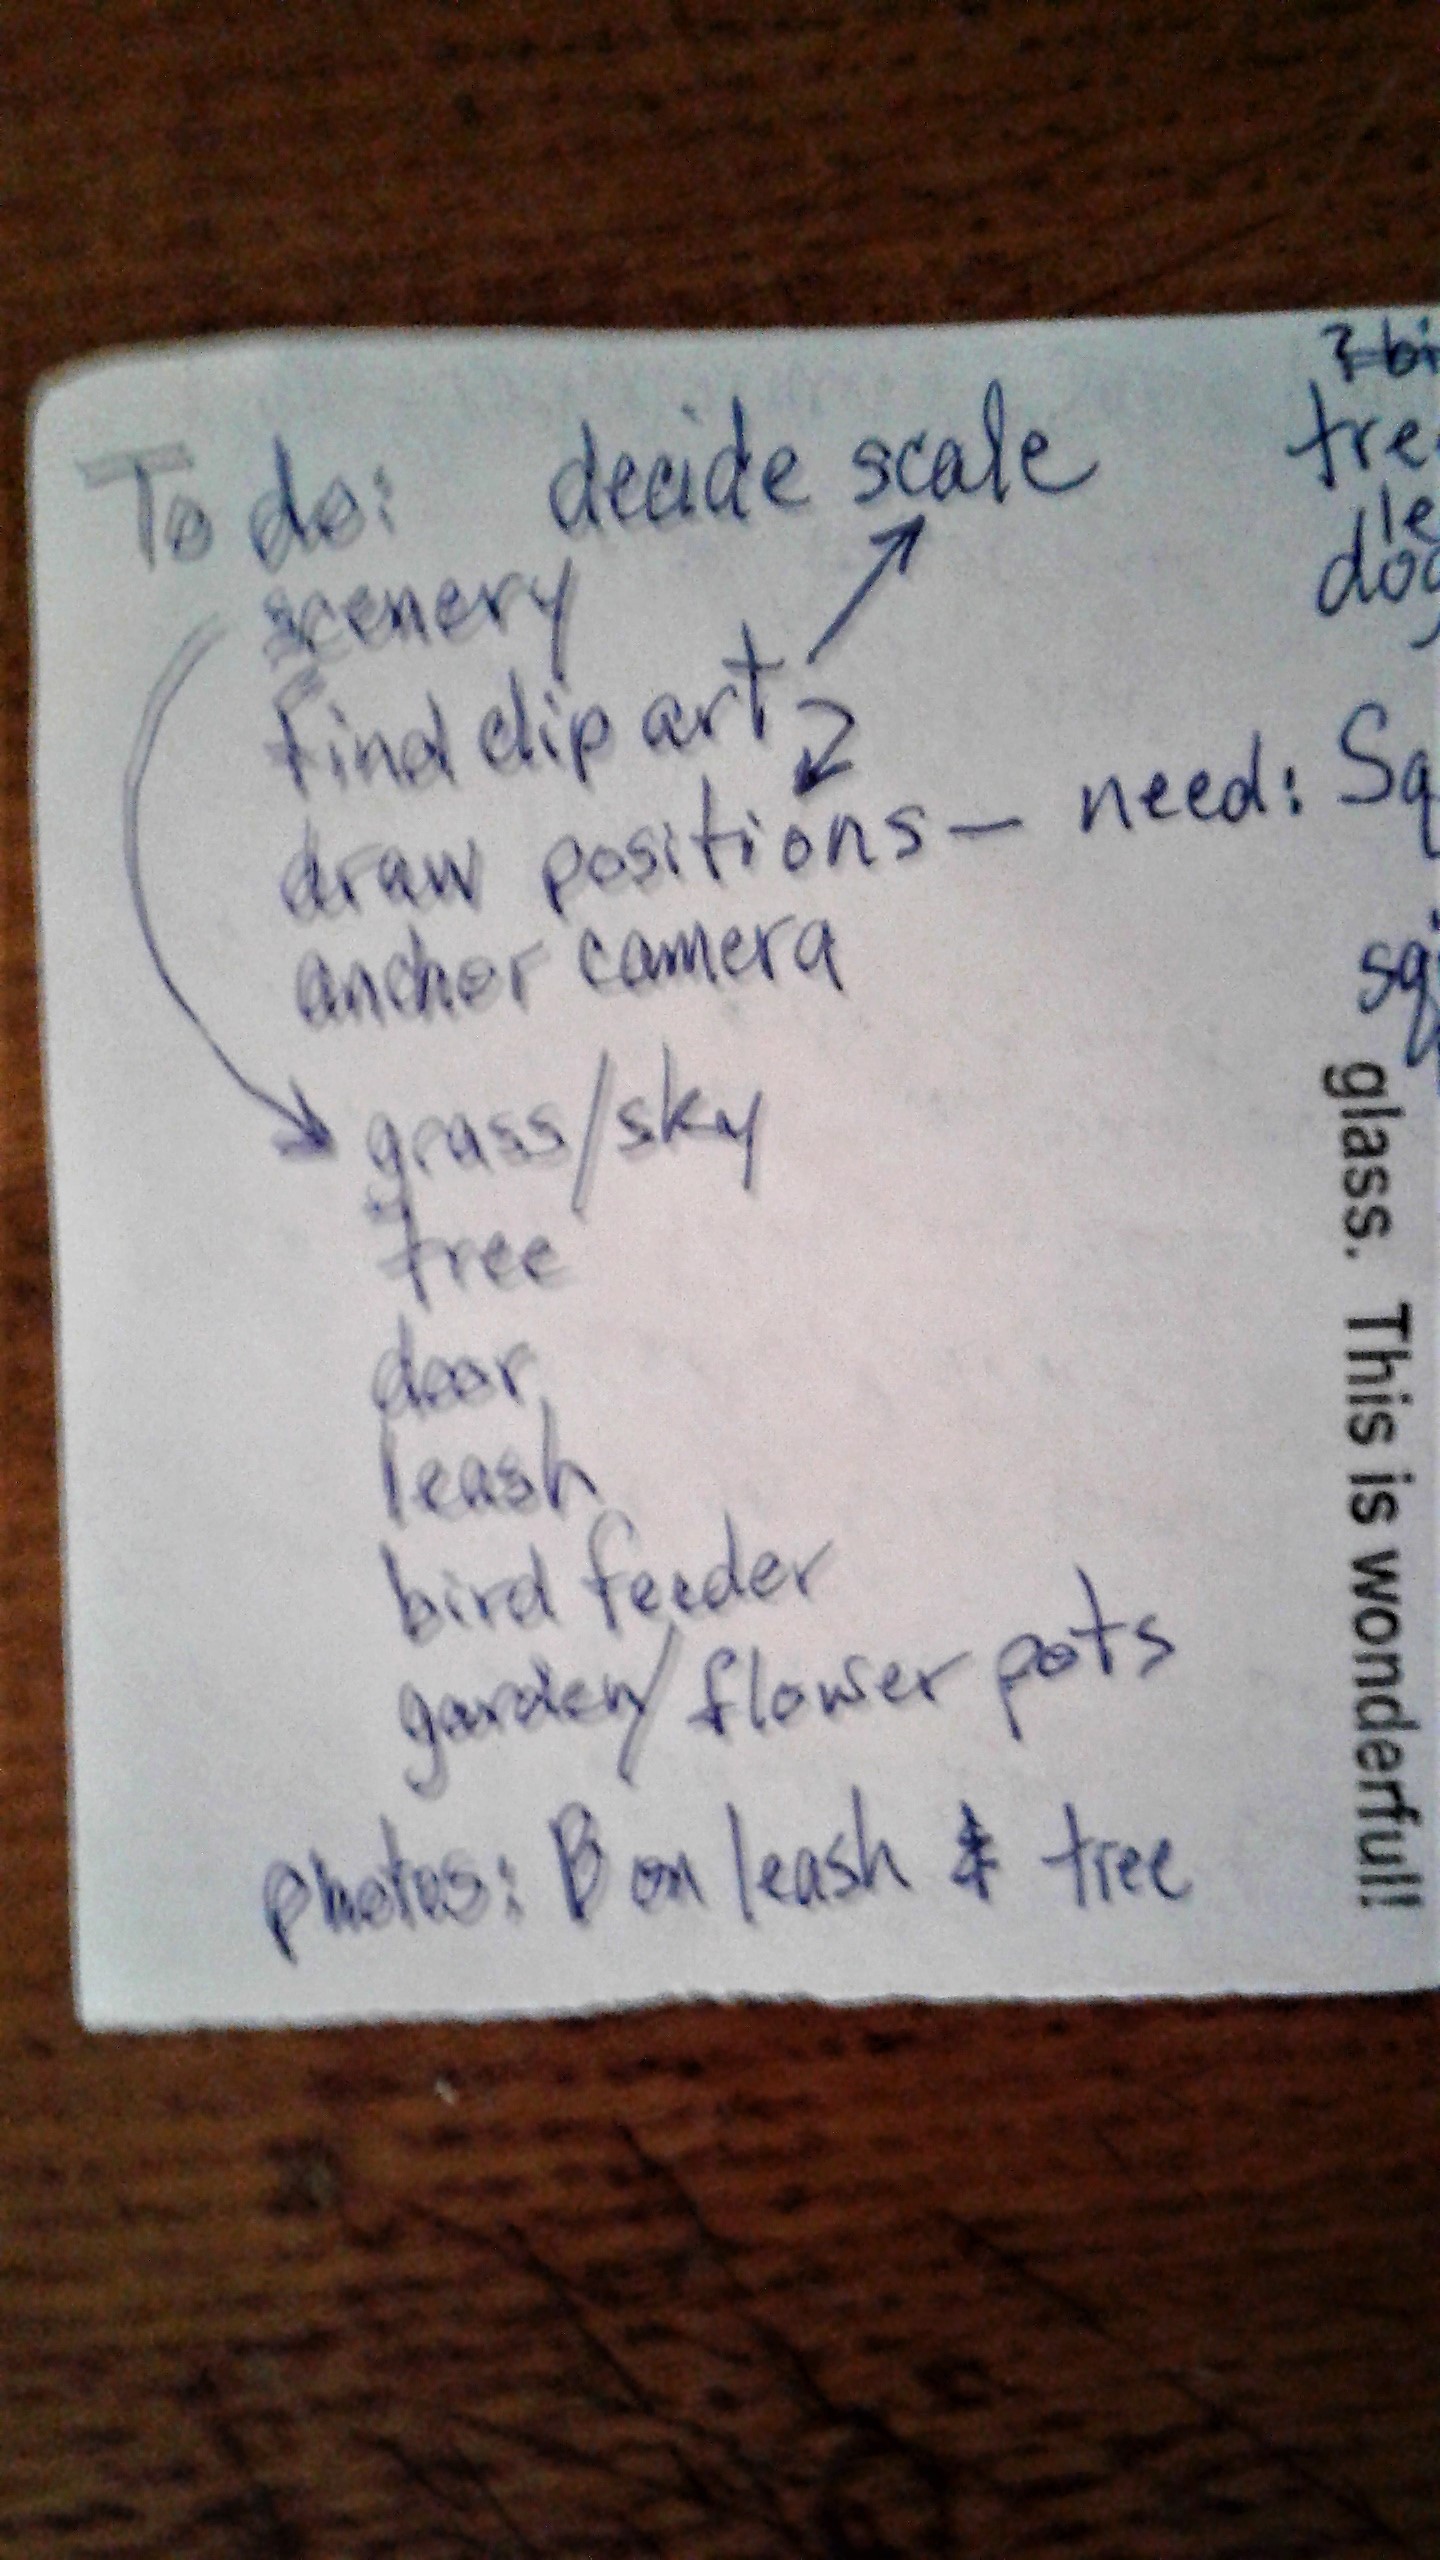 To do: decide scale
scenery
find clip art
draw positions — need:
anchor camera
grass/sky
tree
door
leash
bird feeder
garden/flower pots
photos: B on leash & tree
glass. This is wonderful!